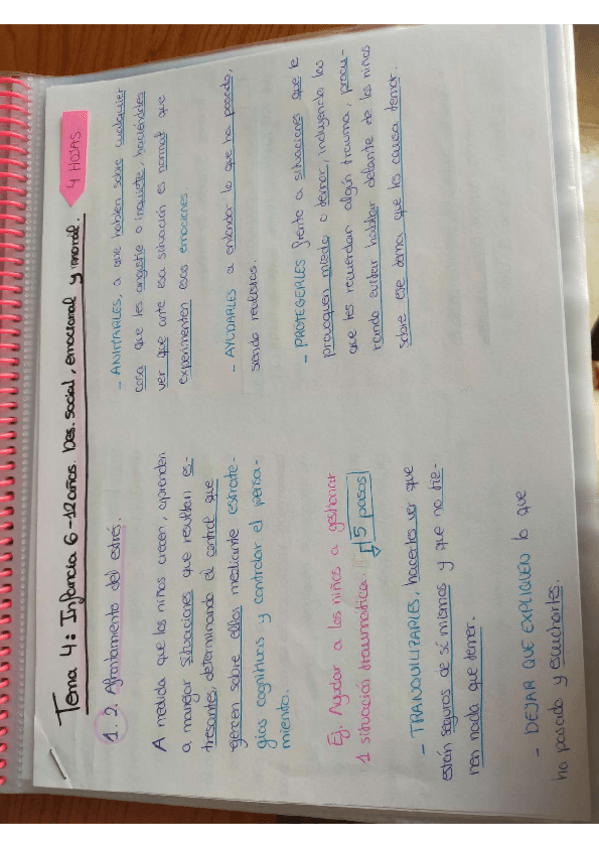 Tema 4: Infancia 6-12 años. Des. social, emocional y moral.
4 HOJAS
1.2. Afrontamiento del estrés.
A medida que los niños crecen, aprenden
a manejar situaciones que resultan es-
tresantes, determinando el control que
ejercen sobre ellas mediante estrate-
gias cognitivas y controlar el pensa-
miento.
Ej. Ayudar a los niños a gestionar
1 situación traumática.
5 pasos
- TRANQUILIZARLES, hacerles ver que
están seguros de sí mismos y que no tie-
nen nada que temer.
- DEJAR QUE EXPLIQUEN lo que
ha pasado y escucharles.
- ANIMARLES, a que hablen sobre cualquier
cosa que les angustie o inquiete, haciéndoles
ver que ante esa situación es normal que
experimenten esas emociones.
- AYUDARLES a entender lo que ha pasado,
siendo realistas.
- PROTEGERLES frente a situaciones que le
provoquen miedo o temor, incluyendo las
que les recuerdan algún trauma, procu-
rando evitar hablar delante de los niños
sobre ese tema que les causa temor.